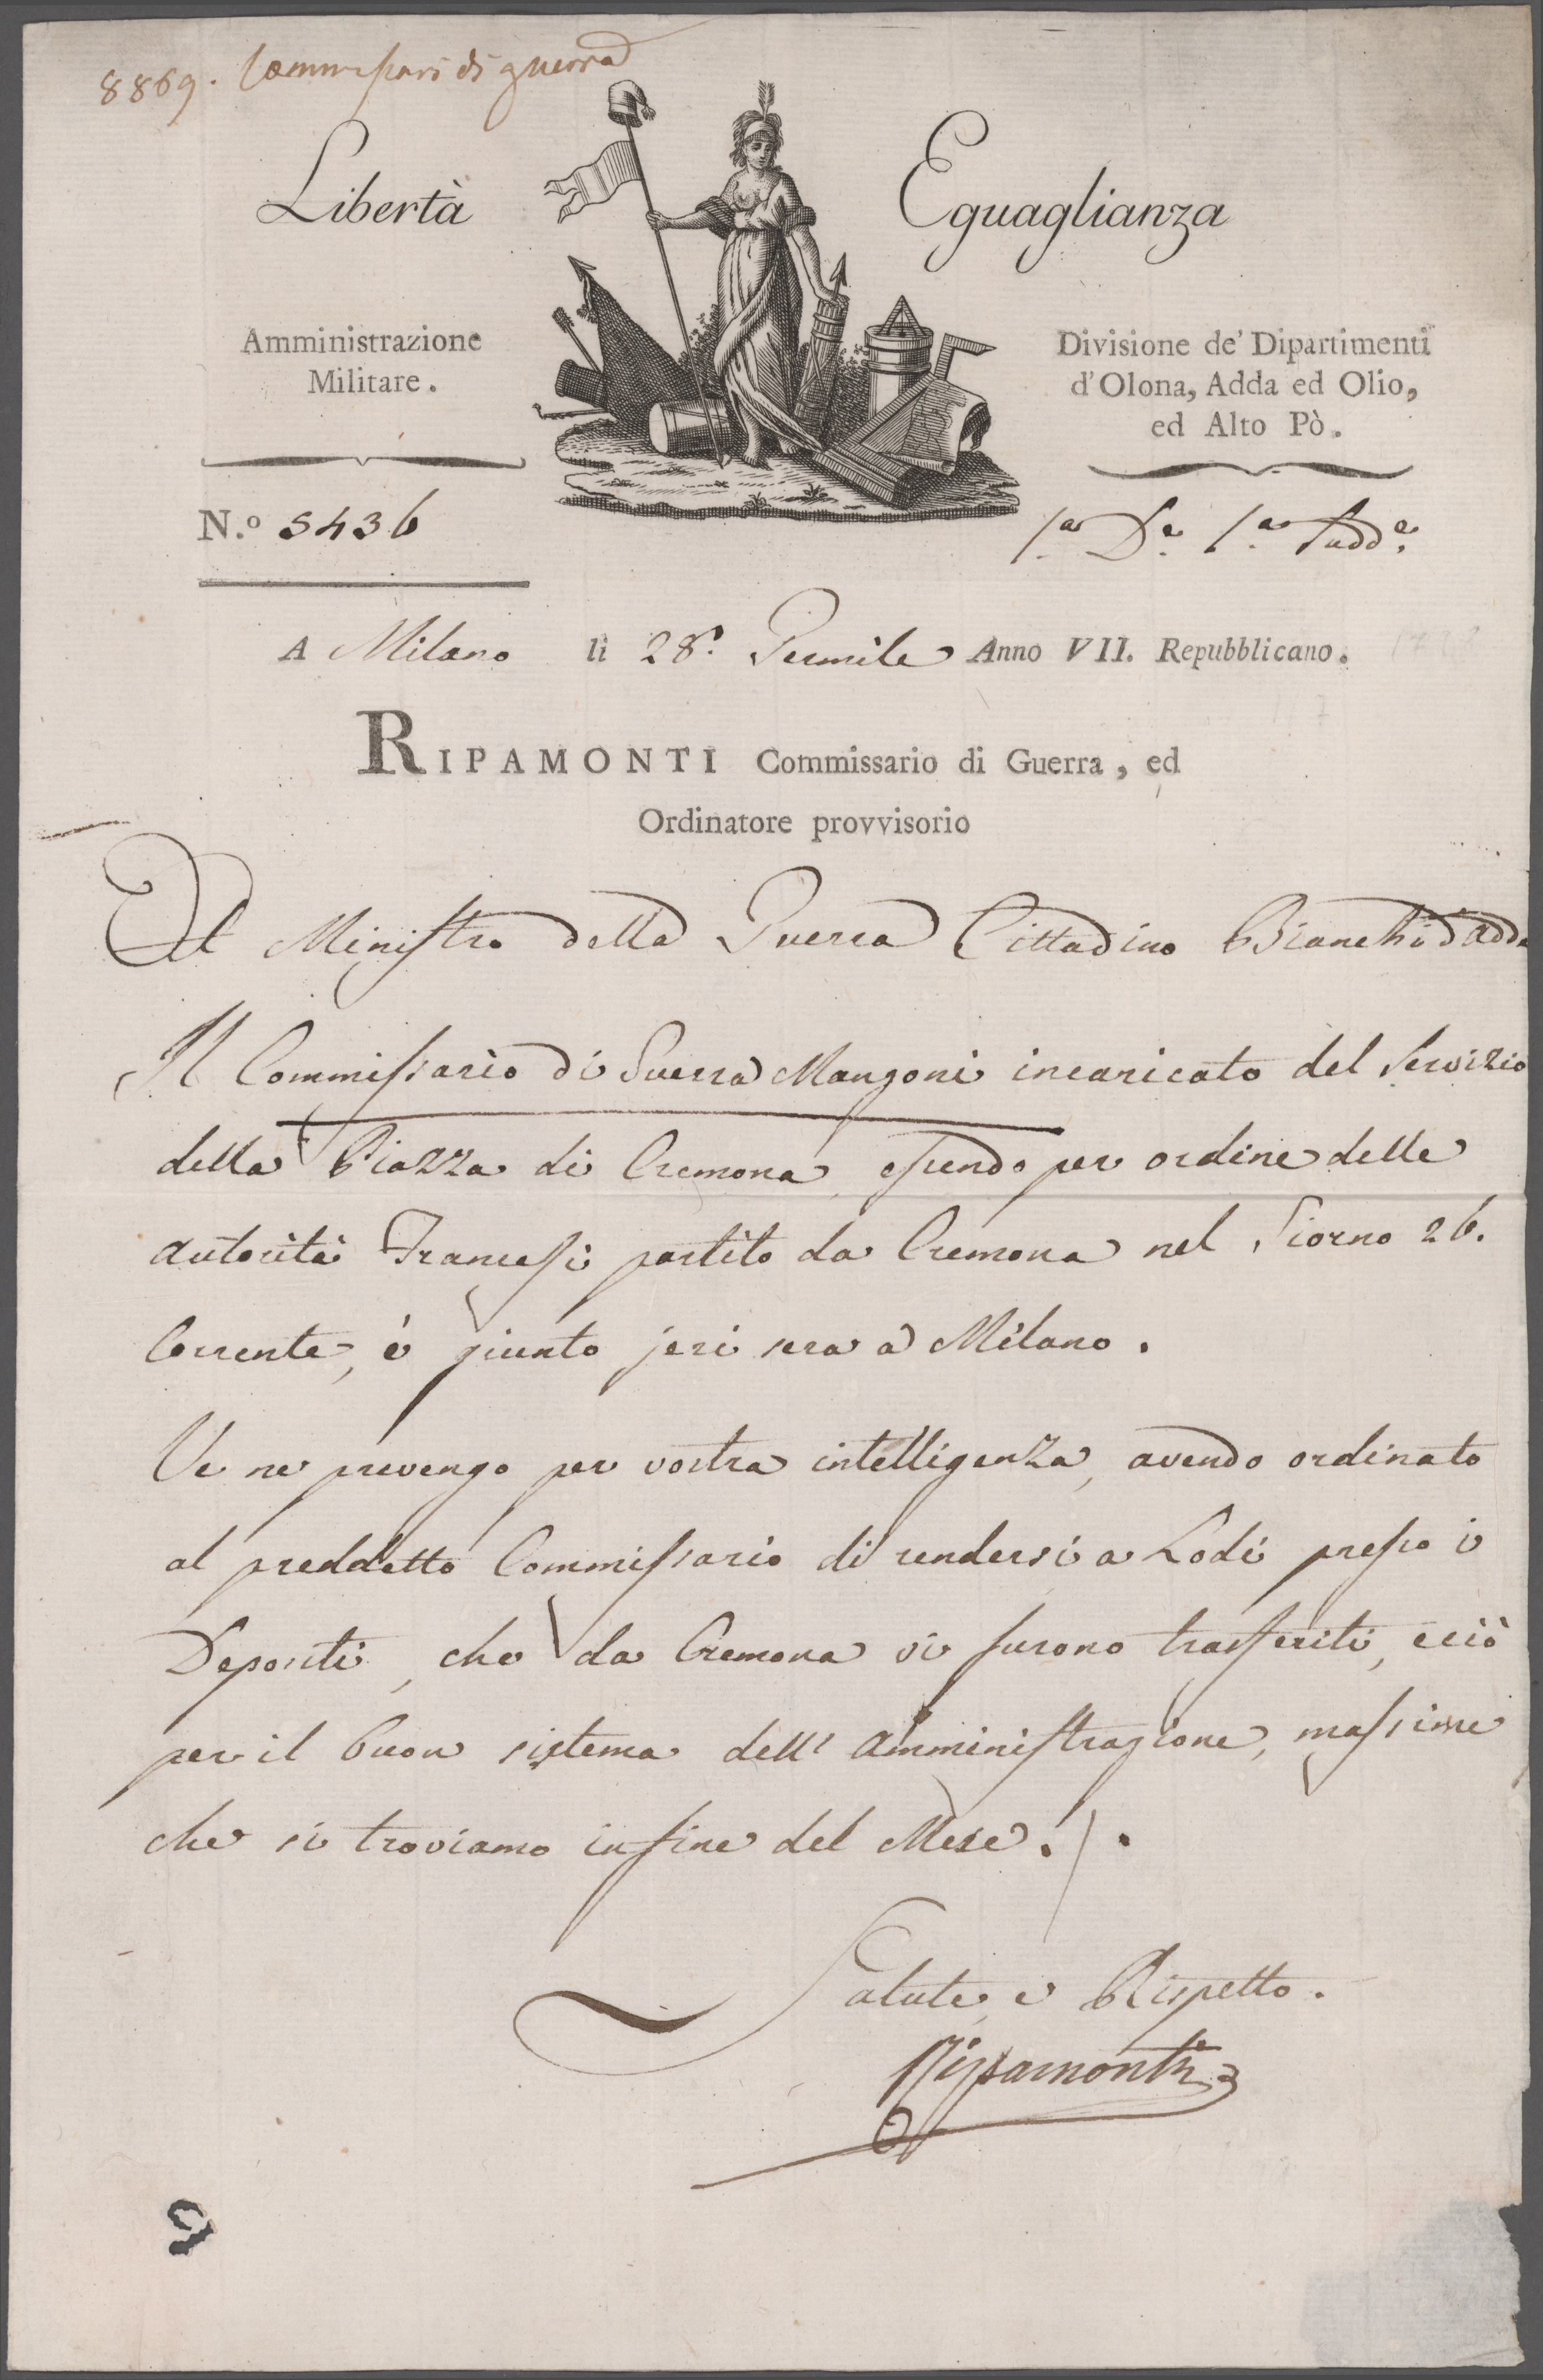 8869. Commissari di guerra
Libertà Eguaglianza
Amministrazione
Militare.
Divisione de' Dipartimenti
d'Olona, Adda ed Olio,
ed Alto Pò.
N.º 5436
1.a D.e 1.a Sudd.e
A Milano li 28. Germile Anno VII. Repubblicano.
RIPAMONTI Commissario di Guerra, ed
Ordinatore provvisorio
Al Ministro della Guerra Cittadino Bianchi d'Adda
Il Commissario di Guerra Manzoni incaricato del Servizio
della Piazza di Cremona, essendo per ordine delle
autorità Francesi partito da Cremona nel Giorno 26.
Corrente, è giunto jeri sera a Milano.
Ve ne prevengo per vostra intelligenza, avendo ordinato
al preddetto Commissario di rendersi a Lodi presso i
Depositi, che da Cremona vi furono trasferiti, e ciò
per il buon sistema dell' amministrazione, massime
che si troviamo in fine del Mese. / .
Salute, e Rispetto.
Ripamonti